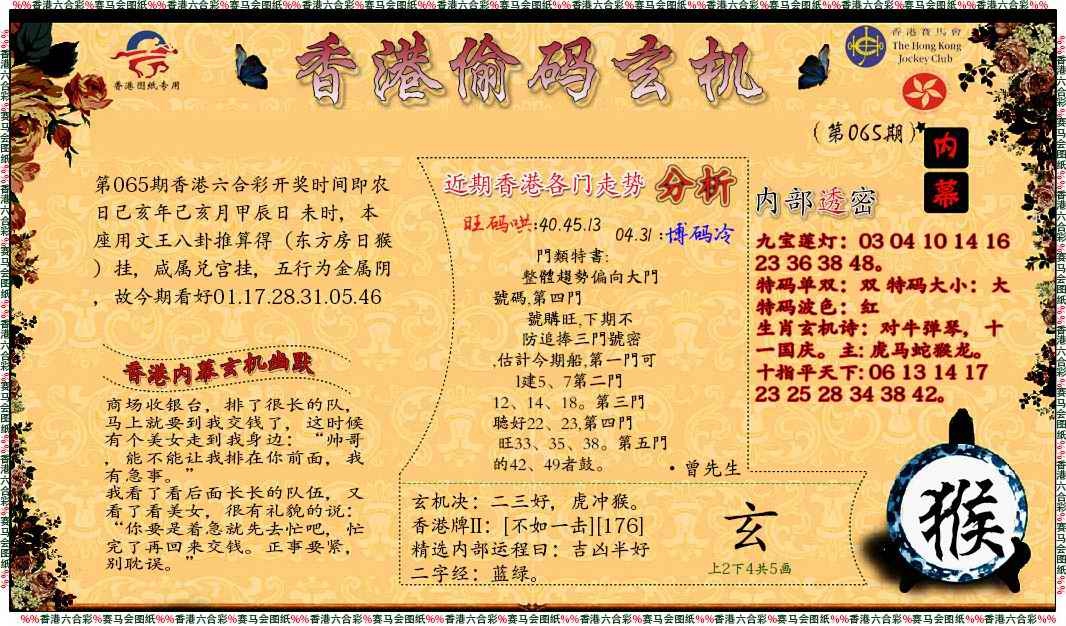 %%香港六合彩%赛马会图纸%%香港六合彩%赛马会图纸%%香港六合彩%赛马会图纸%%香港六合彩%赛马会图纸%%香港六合彩%赛马会图纸%%香港六合彩%赛马会图纸%%香港六合彩%赛马会图纸%%香港六合彩%%
香港图纸专用
香港偷码玄机
香港賽馬會
The Hong Kong
Jockey Club
（第065期）
第065期香港六合彩开奖时间即农
日己亥年己亥月甲辰日 未时，本
座用文王八卦推算得（东方房日猴
）挂，咸属兑宫挂，五行为金属阴
，故今期看好01.17.28.31.05.46
香港内幕玄机幽默
商场收银台，排了很长的队，
马上就要到我交钱了，这时候
有个美女走到我身边：“帅哥
，能不能让我排在你前面，我
有急事。”
我看了看后面长长的队伍，又
看了看美女，很有礼貌的说：
“你要是着急就先去忙吧，忙
完了再回来交钱。正事要紧，
别耽误。”
近期香港各门走势 分析
旺码哄:40.45.13 04.31 :博码冷
門類特書:
整體趨勢偏向大門
號碼,第四門
號購旺,下期不
防追捧三門號密
,估計今期船,第一門可
1建5、7第二門
12、14、18。第三門
聽好22、23,第四門
旺33、35、38。第五門
的42、49者鼓。
·曾先生
玄机决：二三好，虎冲猴。
香港牌II：[不如一击][176]
精选内部运程曰：吉凶半好
二字经：蓝绿。
玄
上2下4共5画
内幕
内部透密
九宝莲灯：03 04 10 14 16
23 36 38 48。
特码单双：双 特码大小：大
特码波色：红
生肖玄机诗：对牛弹琴，十
一国庆。主: 虎马蛇猴龙。
十指平天下: 06 13 14 17
23 25 28 34 38 42。
猴
%%香港六合彩%赛马会图纸%%香港六合彩%赛马会图纸%%香港六合彩%赛马会图纸%%香港六合彩%赛马会图纸%%香港六合彩%赛马会图纸%%香港六合彩%赛马会图纸%%香港六合彩%赛马会图纸%%香港六合彩%%